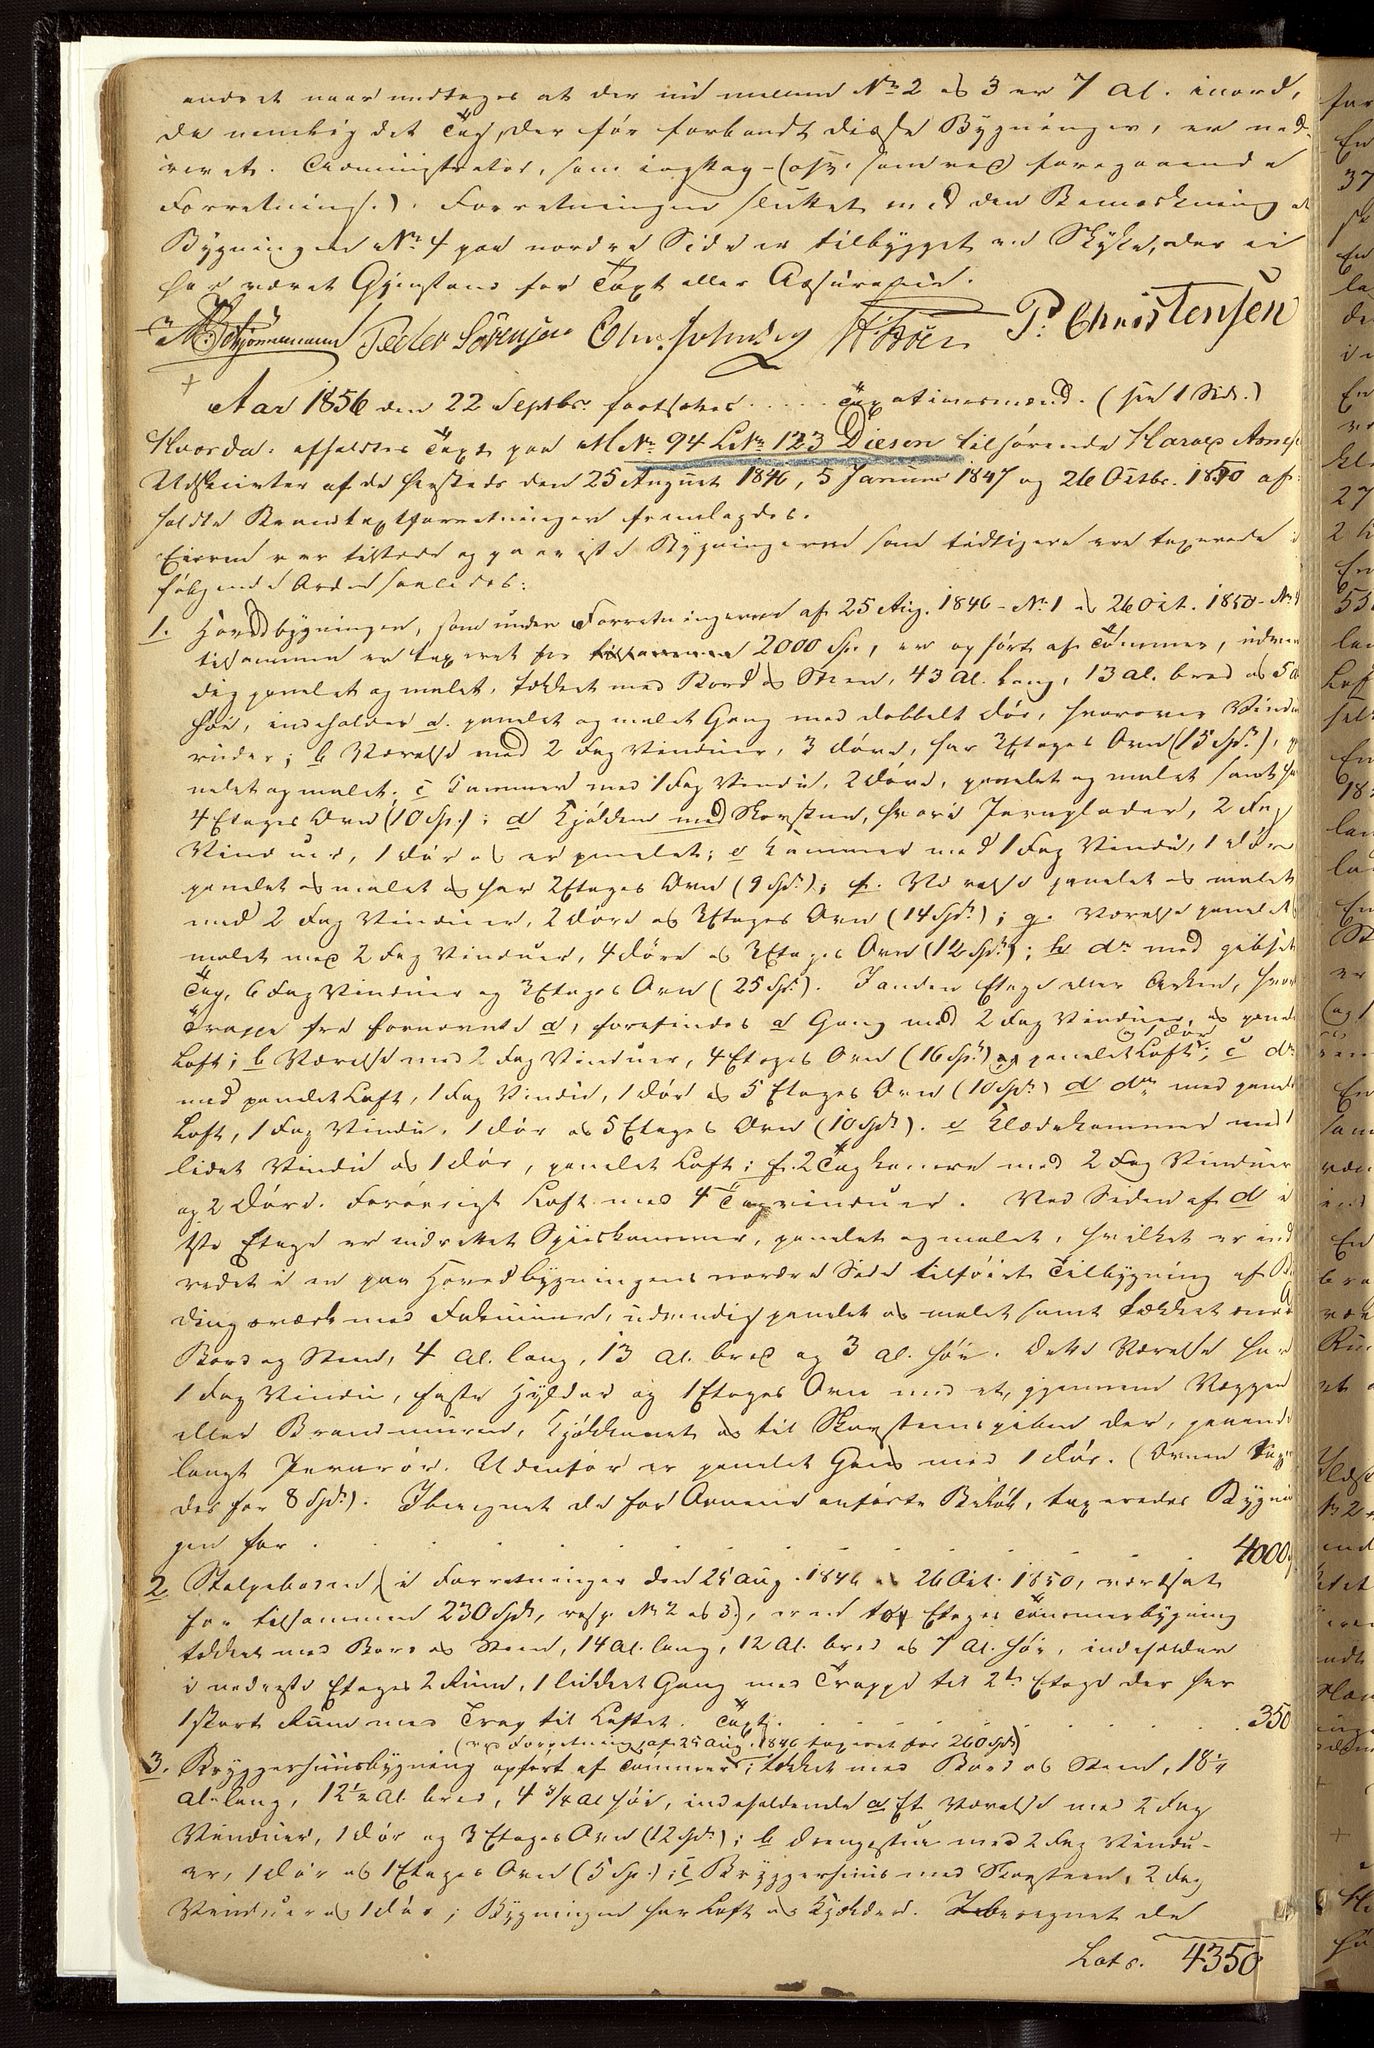 andret naar undtages at der nu mellem No 2 og 3 er 7 Al. i nord,
da nemlig det Tag, der før forbandt disse Bygninger, er ned-
revet. Administrator, som iagttog - (osv. som ved foregaaende
Forretning.). Forretningen sluttet med den Bemærkning at
Bygningen No 4 paa nordre Side er tilbygget en Skykle, der ei
har været Gjenstand for Taxt eller Assurance.
Peder Sørensen P: Christensen
Aar 1856 den 22 Septbr. fortsattes ..... Taxationsmænd. (see 1 Side.)
Hvorda. afholdtes Taxt paa MNo 94 LNo 123 Diesen tilhørende Harald
Udskrifter af de herstedes den 25 August 1846, 5 Januar 1847 og 26 Octbr. 1850 af-
holdte Brandtaxtforretninger fremlagdes.
Eieren var tilstede og paaviste Bygningerne som tidligere ere taxerede i
følgende Orden saaledes:
1. Hovedbygningen, som under Forretningerne af 25 Aug. 1846 - No 1 og 26 Oct. 1850 - No 1
tilsammen er taxeret for 2000 Spd, er opført af Tømmer, udven-
dig panelet og malet, tækket med Bord og Steen, 43 Al. lang, 13 Al. bred og 5 Al
høi, indeholder a. panelet og malet Gang med dobbelt Dør, hvorover Vindu
ruder; b Værelse med 2 Fag Vinduer, 3 Døre, har 3 Etages Ovn (15 Spd.), pa
nelet og malet; c Kammer med 1 Fag Vindu, 2 Døre, panelet og malet samt har
4 Etages Ovn (10 Sp.); d Kjøkken med Skorsteen, hvori Jernplader, 2 Fag
Vinduer, 1 Dør og er panelet; e Kammer med 1 Fag Vindu, 1 Dør
panelet og malet og har 2 Etages Ovn (9 Spd.); f. Værelse panelet og malet
med 2 Fag Vinduer, 2 Døre og 3 Etages Ovn (14 Spd.); g. Værelse panelet
malet med 2 Fag Vinduer, 4 Døre og 3 Etages Ovn (12 Spd.); h do med gibset
Tag, 6 Fag Vinduer og 3 Etages Ovn (25 Spd.). I anden Etage eller Arken, hvor
Trappe fra fornævnte a, forefindes a Gang med 2 Fag Vinduer, og panel
Loft; b Værelse med 2 Fag Vinduer, 4 Etages Ovn (16 Spd.) og panelet Loft og 1 Dør; c do
med panelet Loft, 1 Fag Vindu, 1 Dør og 5 Etages Ovn (10 Spd.) d do med panel
Loft, 1 Fag Vindu, 1 Dør og 5 Etages Ovn (10 Spd.). e Klædekammer med 1
lidet Vindu og 1 Dør, panelet Loft; f. 2 Tagkamre med 2 Fag Vinduer
og 2 Døre. Forøvrigt Loft med 4 Tagvinduer. Ved Siden af d i
1ste Etage er indrettet Spiiskammer, panelet og malet, hvilket er ind
redet i en paa Hovedbygningens nordre Side tilføiet Tilbygning af Bin
dingsværk med Fakmuur, udvendig panelet og malet samt tækket med
Bord og Steen, 4 Al. lang, 13 Al. bred og 3 Al. høi. Dette Værelse har
1 Fag Vindu, faste Hylder og 1 Etages Ovn med et, gjennem Væggen
eller Brandmuren, Kjøkkenet og til Skorsteenspiben der, gaaende
langt Jernrør. Udenfor er panelet Gang med 1 Dør. (Ovnen taxe
redes for 8 Spd.). Iberegnet de for Ovnene anførte Beløb, taxeredes Bygnin
gen for . . . . . . . . . 4000
2 Stolpeboden, (i Forretninger den 25 Aug. 1846 og 26 Oct. 1850, værdsat
for tilsammen 230 Spd, resp. No 2 og 3), er en to Etages Tømmerbygning
tækket med Bord og Steen, 14 Al. lang, 12 Al. bred og 7 Al. høi, indeholder
i nederste Etage 2 Rum, 1 lidet Gang med Trappe til 2den Etage der har
1 stort Rum med Trap til Loftet. Taxt. . . . . . . 350
(ved Forretning af 25 Aug. 1846 taxeret for 260 Spd)
3. Bryggerhuusbygning opført af Tømmer, tækket med Bord og Steen, 18 1/4
Al. lang, 12 1/2 Al. bred, 4 3/4 Al høi, indeholdende a Et Værelse med 2 Fag
Vinduer, 1 Dør og 3 Etages Ovn (12 Spd.); b Drengestue med 2 Fag Vindu-
er, 1 Dør og 1 Etages Ovn (5 Sp.); c Bryggerhuus med Skorsteen, 2 Fag
Vinduer og 1 Dør; Bygningen har Loft og Kjælder. Iberegnet de
Lats. 4350